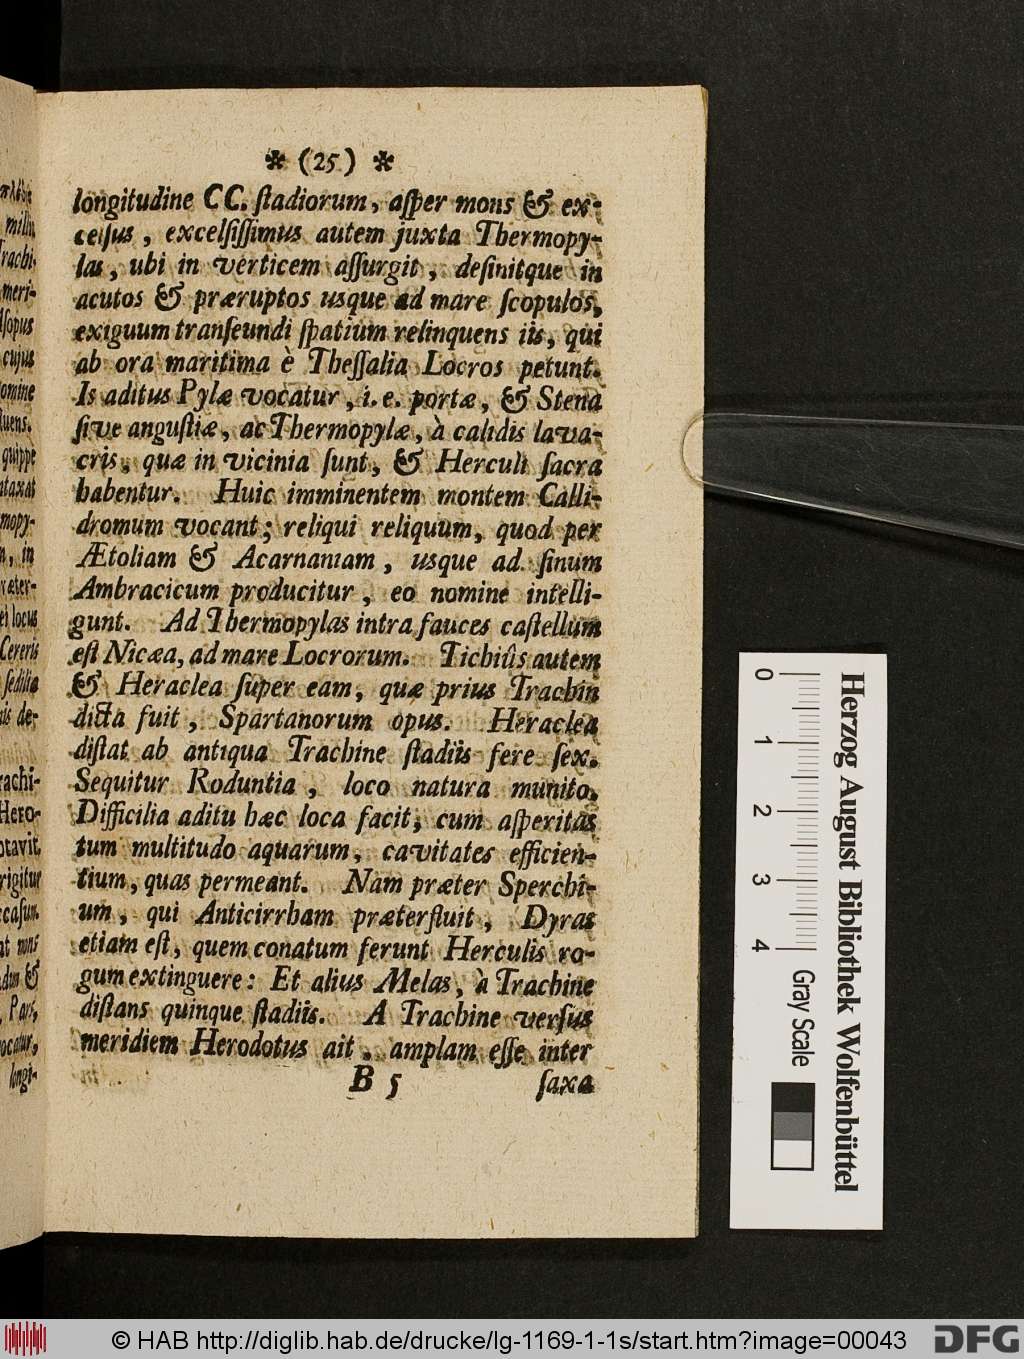 ✻ (25) ✻
longitudine CC. ſtadiorum, aſper mons & ex-
celſus, excelſiſſimus autem juxta Thermopy-
las, ubi in verticem aſſurgit, deſinitque in
acutos & præruptos usque ad mare ſcopulos,
exiguum tranſeundi ſpatium relinquens iis, qui
ab ora maritima è Theſſalia Locros petunt.
Is aditus Pylæ vocatur, i. e. portæ, & Stena
ſive anguſtiæ, ac Thermopylæ, à calidis lava-
cris, quæ in vicinia ſunt, & Herculi ſacra
habentur. Huic imminentem montem Calli-
dromum vocant; reliqui reliquum, quod per
Ætoliam & Acarnaniam, usque ad ſinum
Ambracicum producitur, eo nomine intelli-
gunt. Ad Thermopylas intra fauces caſtellum
eſt Nicæa, ad mare Locrorum. Tichiûs autem
& Heraclea ſuper eam, quæ prius Trachin
dicta fuit, Spartanorum opus. Heraclea
diſtat ab antiqua Trachine ſtadiis fere ſex.
Sequitur Roduntia, loco natura munito.
Difficilia aditu hæc loca facit, cum aſperitas
tum multitudo aquarum, cavitates efficien-
tium, quas permeant. Nam præter Sperchi-
um, qui Anticirrham præterfluit, Dyras
etiam eſt, quem conatum ferunt Herculis ro-
gum extinguere: Et alius Melas, à Trachine
diſtans quinque ſtadiis. A Trachine verſus
meridiem Herodotus ait, amplam eſſe inter
B 5 ſaxa
Herzog August Bibliothek Wolfenbüttel
0 1 2 3 4
Gray Scale
© HAB http://diglib.hab.de/drucke/lg-1169-1-1s/start.htm?image=00043
DFG